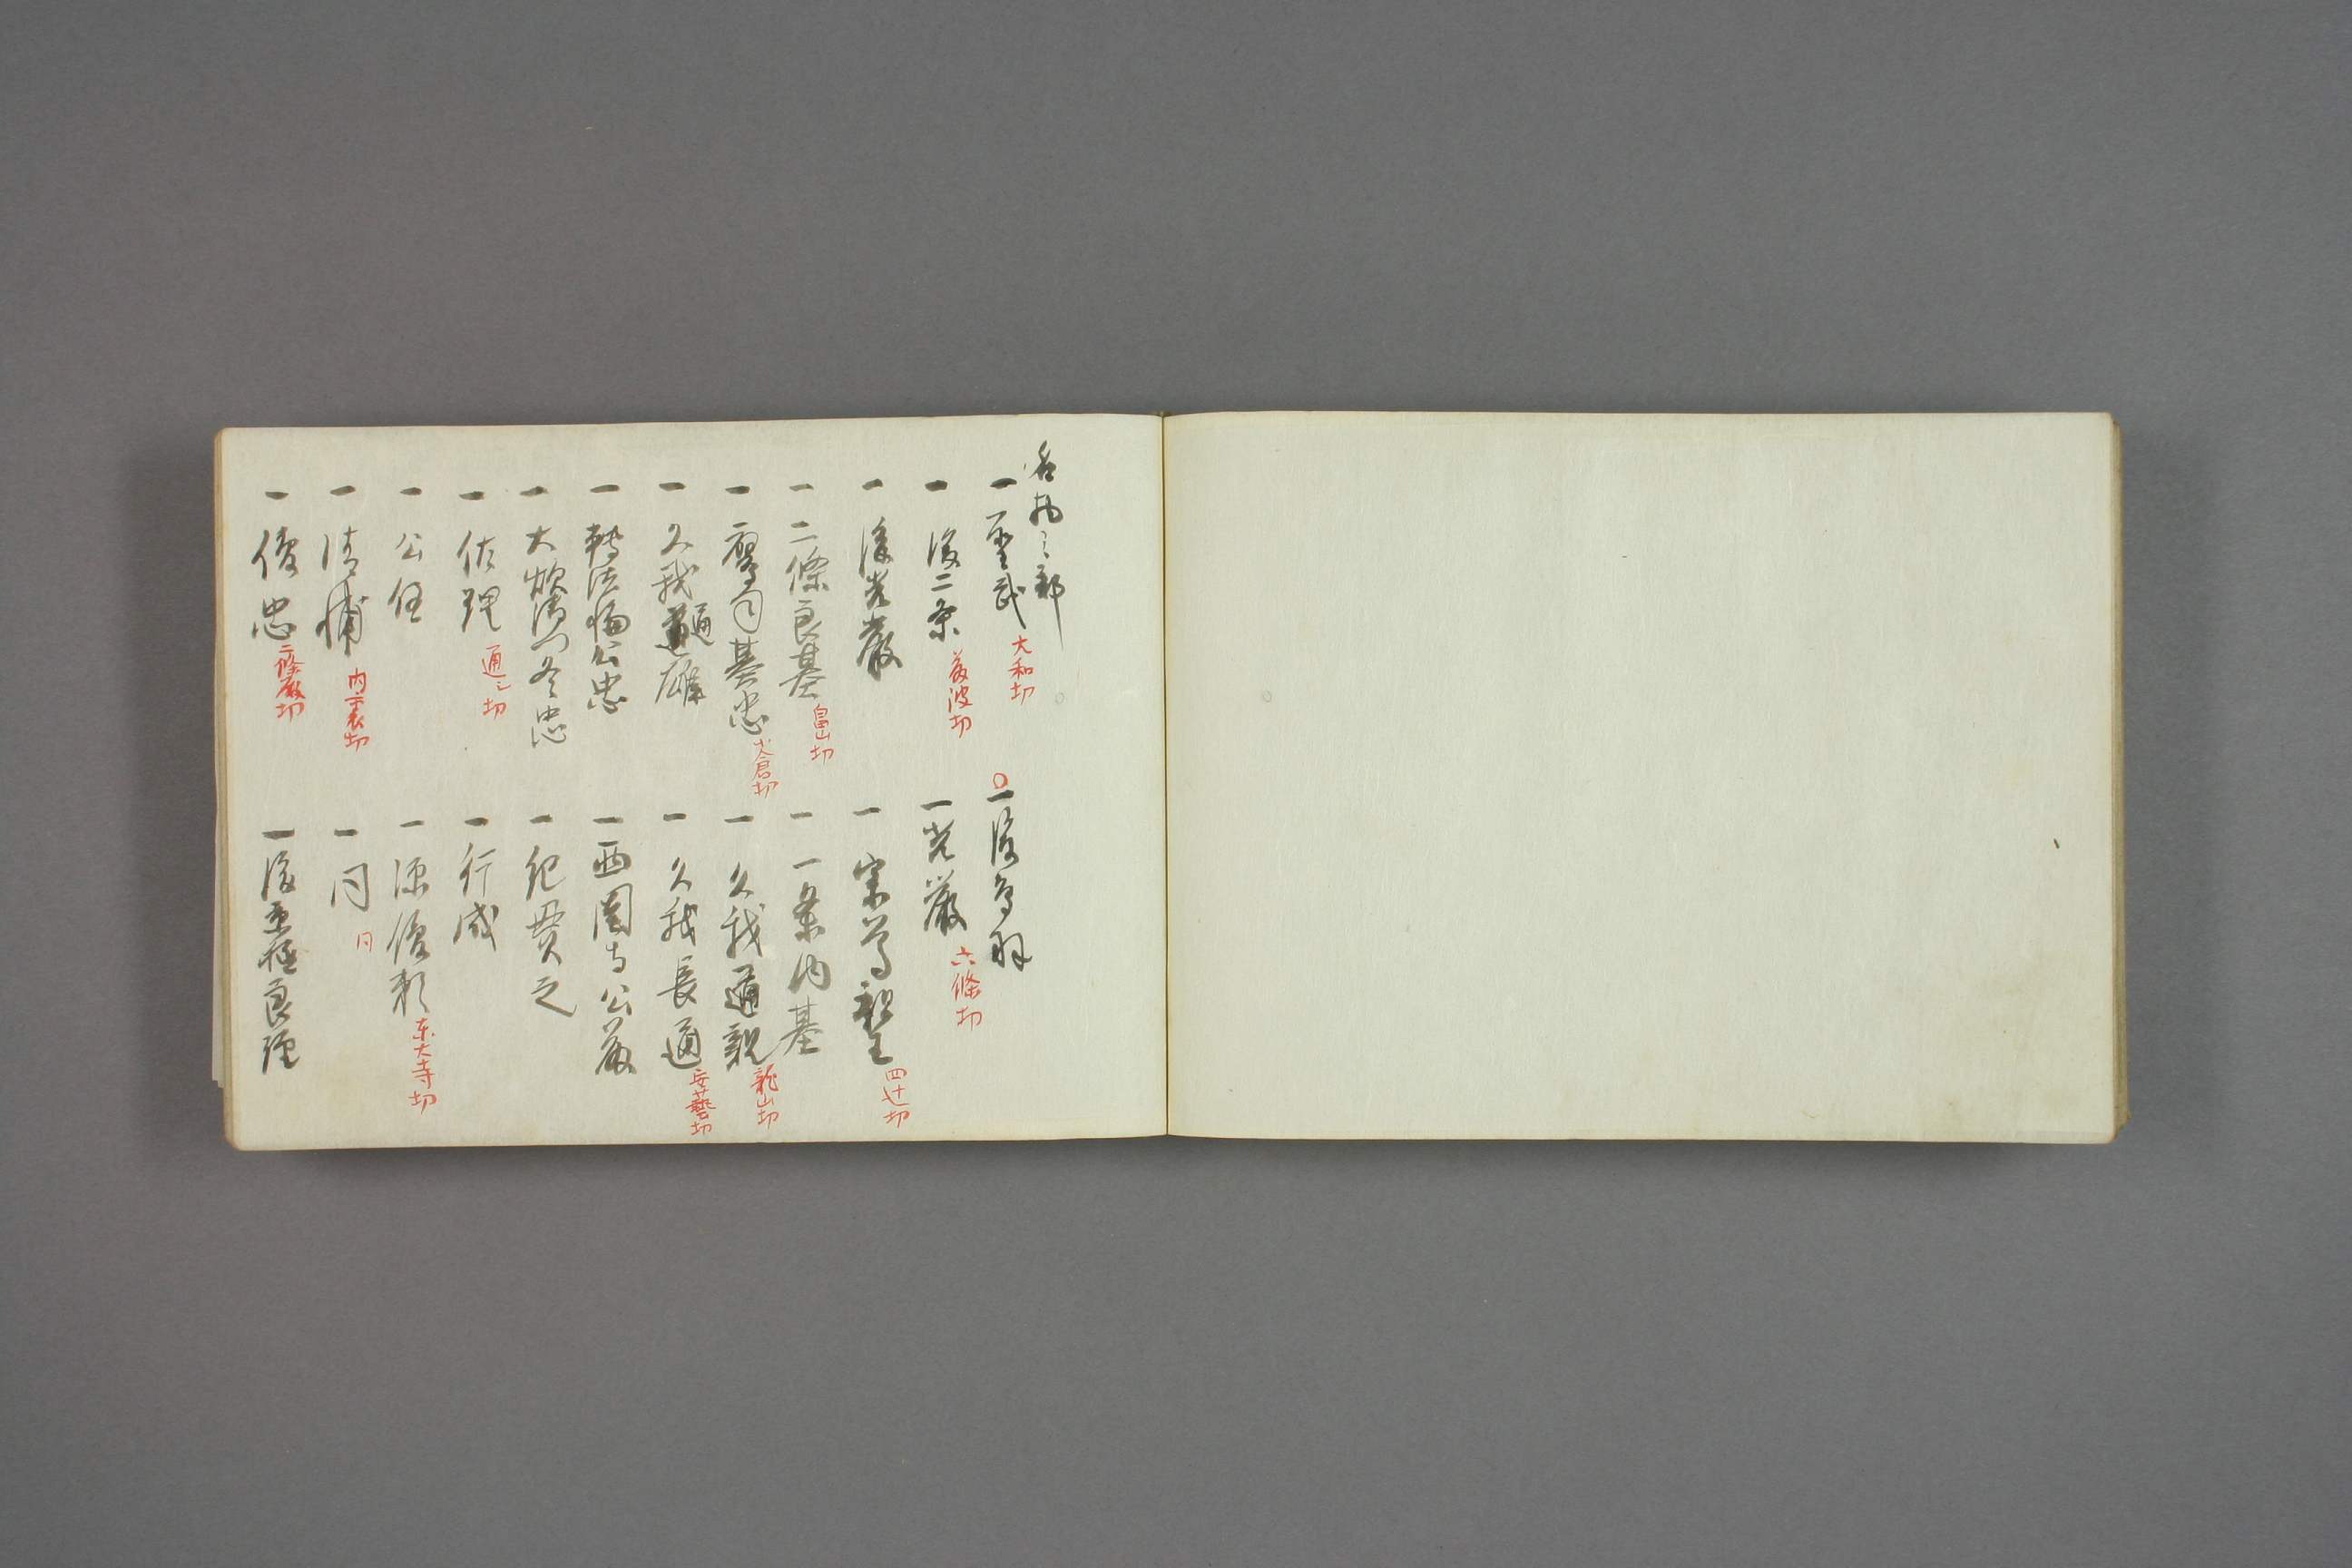 一聖武 大和切
○一後鳥羽
一後二条 藤波切
一光嚴 六條切
一後光嚴
一宗尊親王 四十辻切
一二條良基 畠山切
一一条内基
一鷹司基忠 大倉切
一久我通親 龍山切
一久我通雄
一久我長通 安藝切
一轉法輪公忠
一西園寺公藤
一大炊御門冬忠
一紀貫之
一佐理 通之切
一行成
一公任
一源俊頼 东大寺切
一清輔 内裏切
一同 同
一俊忠 二條殿切
一後京極良経